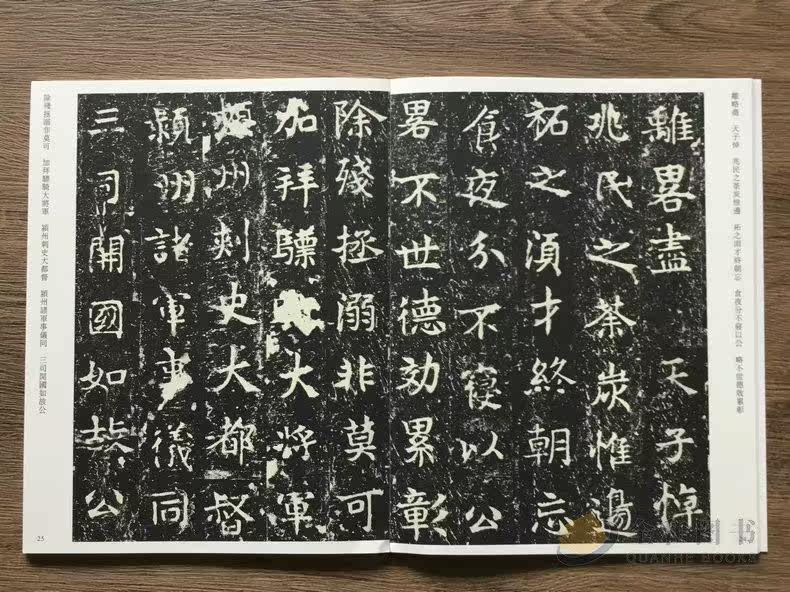 離略盡 天子悼 兆民之荼炭惟邊 祏之須才終朝忘 食夜分不寢以公 略不世德效累彰
離畧盡 天子悼
兆民之荼炭惟邊
祏之須才終朝忘
食夜分不寢以公
畧不世德効累彰
除殘拯溺非莫可
加拜驃大將軍
潁州刺史大都督
潁州諸軍事儀同
三司開國如故公
除殘拯溺非莫可 加拜驃騎大將軍 潁州刺史大都督 潁州諸軍事儀同 三司開國如故公
25
图书
QUANHE BOOKS